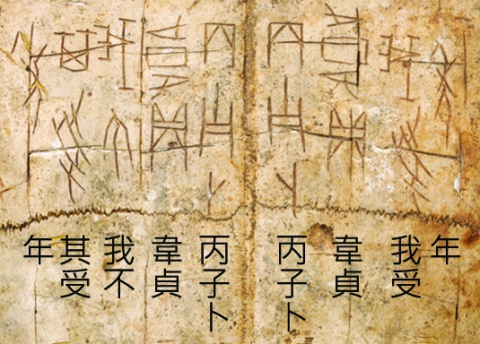 丙子卜
韋貞
我受
年
丙子卜
韋貞
我不
其受
年